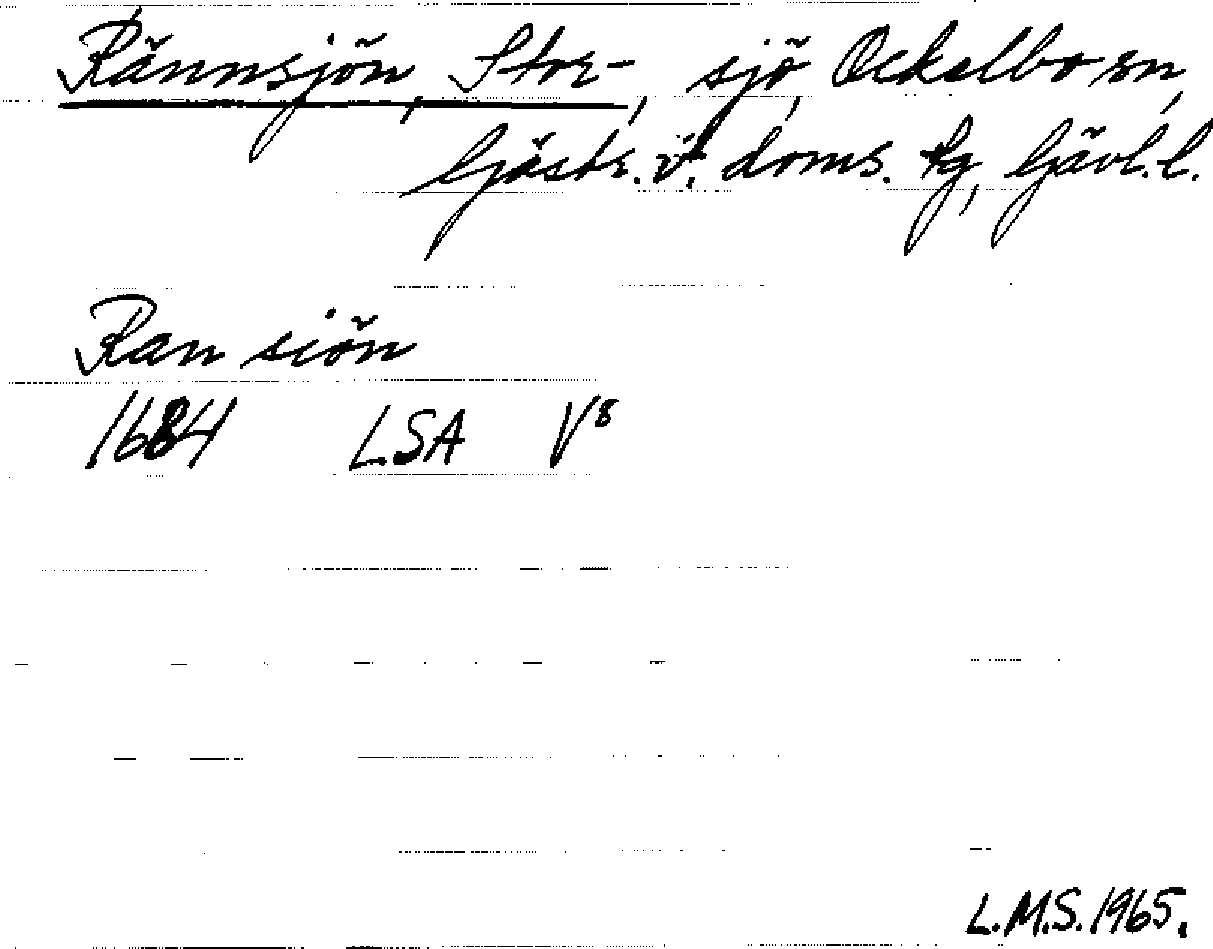 Rännsjön, Stor-, sjö, Ockelbo sn,
Gästr. v. doms. tg, Gävl. l.
Ran siön
1684 LSA V⁸
L.M.S. 1965.